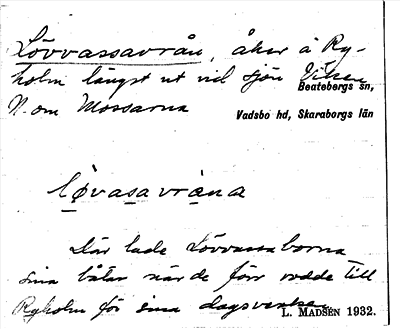 Lövvassavrån, åker å Ry-
holm längst ut vid sjön Viken
Beatebergs sn,
N. om Mossarna
Vadsbo hd, Skaraborgs län
løvasavrạna
Där lade Lövvassaborna
sina båtar när de förr rodde till
Ryholm för sina dagsverken
L. MADSÉN 1932.